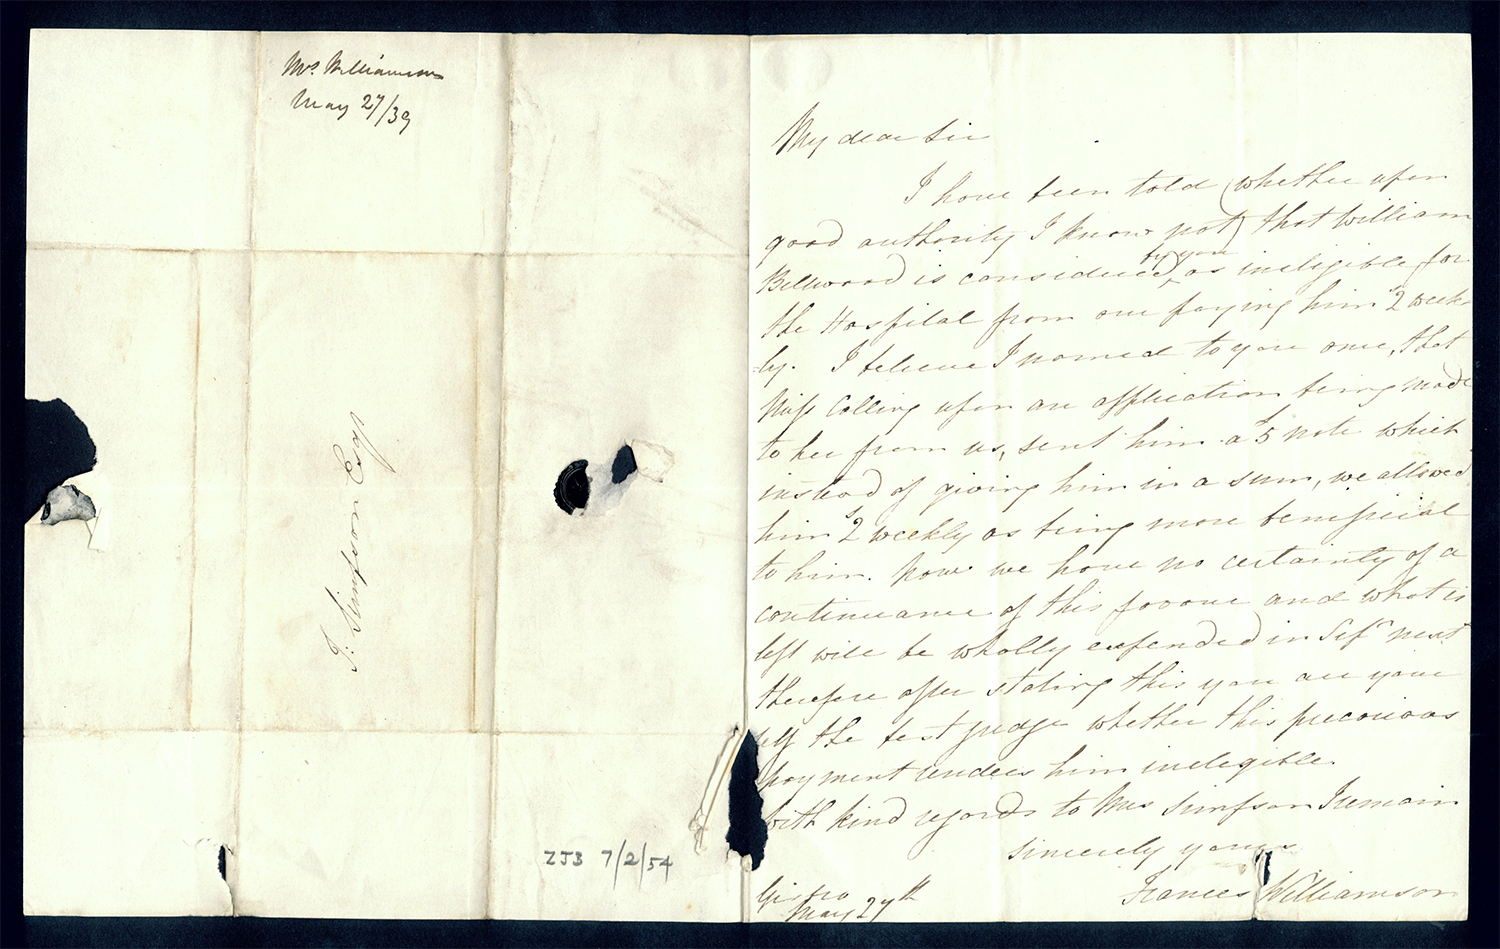 Mrs. Williamson
May 27/39
J: Simpson Esqr
ZJ3 7/2/54
My dear Sir
I have been told (whether upon
good authority I know not) that William
Bellwood is considered by you as ineligible for
the Hospital from our paying him 2s week-
-ly. I believe I named to you once, that
Miss Colling upon an application being made
to her from us, sent him a £5 note which
instead of giving him in a sum, we allowed
him 2s weekly as being more beneficial
to him. Now we have no certainty of a
continuance of this favour and what is
left will be wholly expended in Sepr next
therefore after stating this you are your
self the best judge whether this precarious
payment renders him ineligible.
With kind regards to Mrs Simpson I remain
sincerely yours
Frances Williamson
May 27th